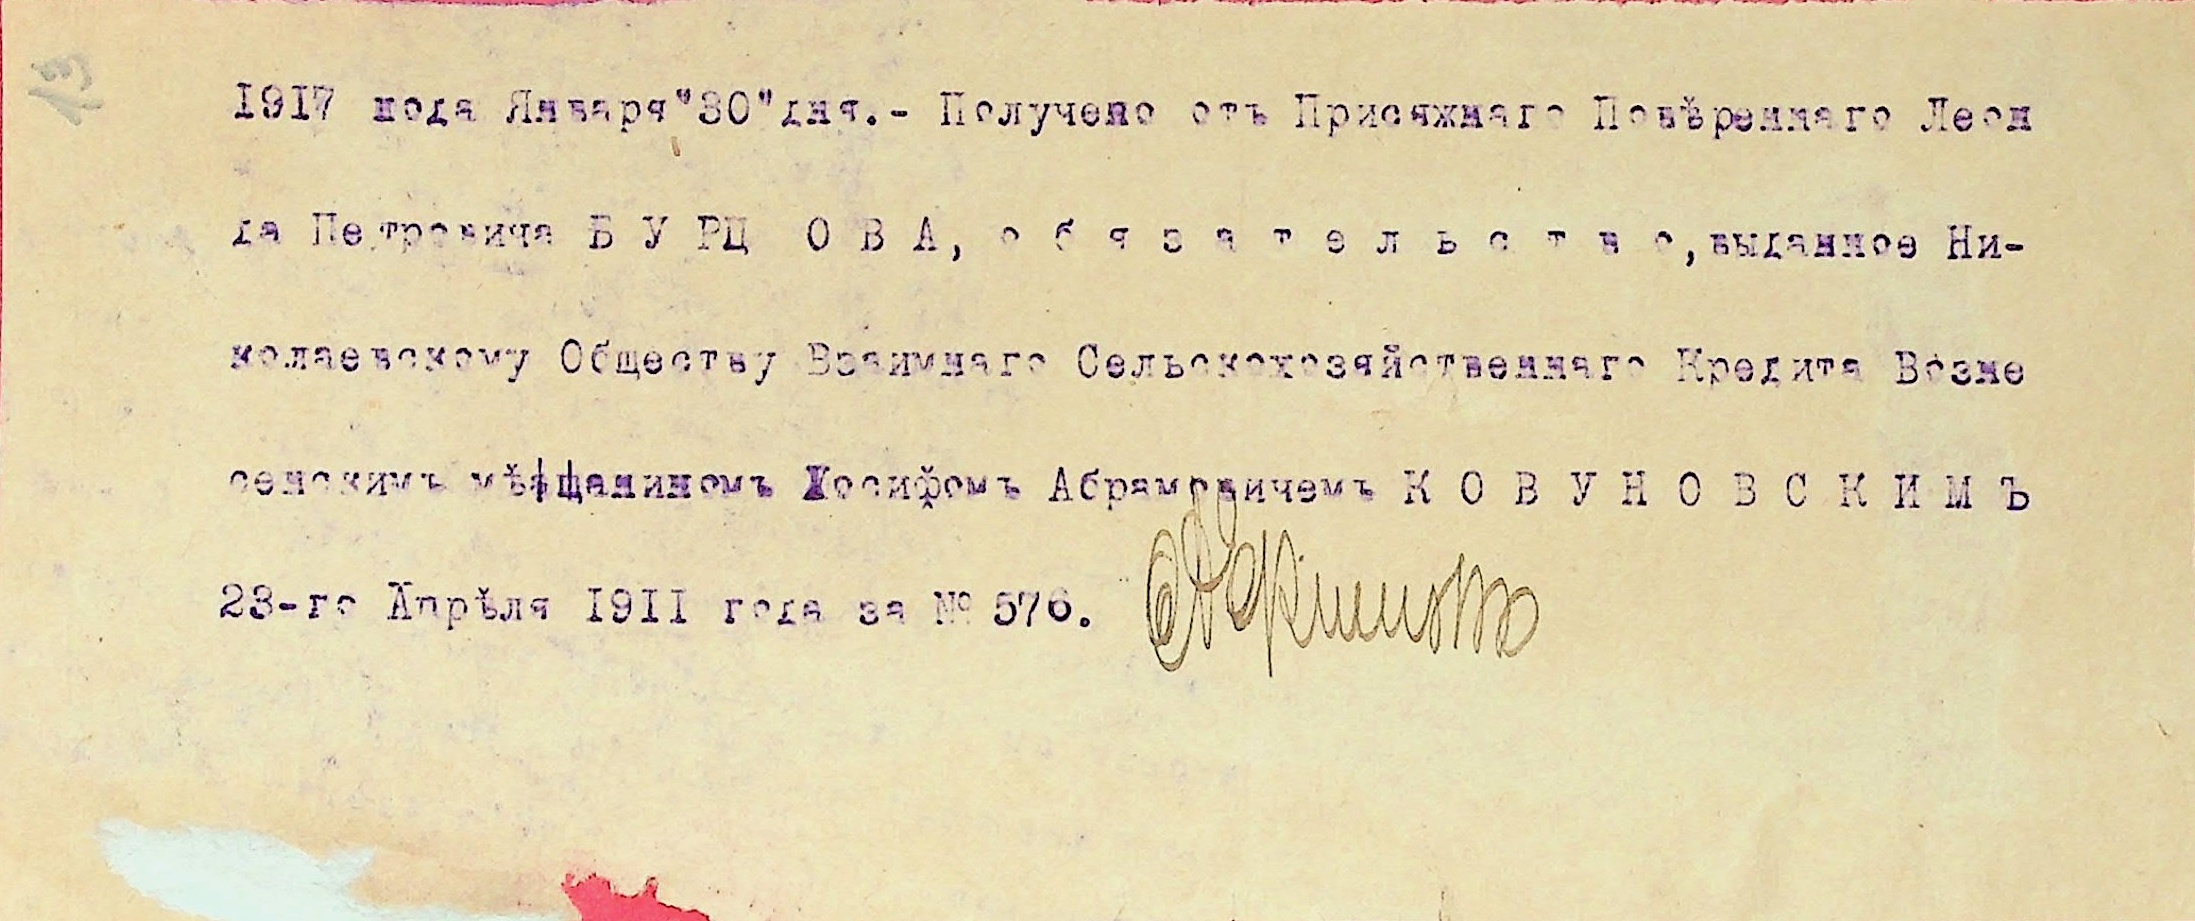 13
1917 нода Января"30"дня.- Получено отъ Присяжнаго Повѣреннаго Леон
да Петровича Б У РЦ О В А, о б я з а т е л ь с т в о,выданное Ни-
колаевскому Обществу Взаимнаго Сельскохозяйственнаго Кредита Возне
сенскимъ мѣщаниномъ Іосифомъ Абрамовичемъ К О В У Н О В С К И М Ъ
23-го Апрѣля 1911 года за № 576.